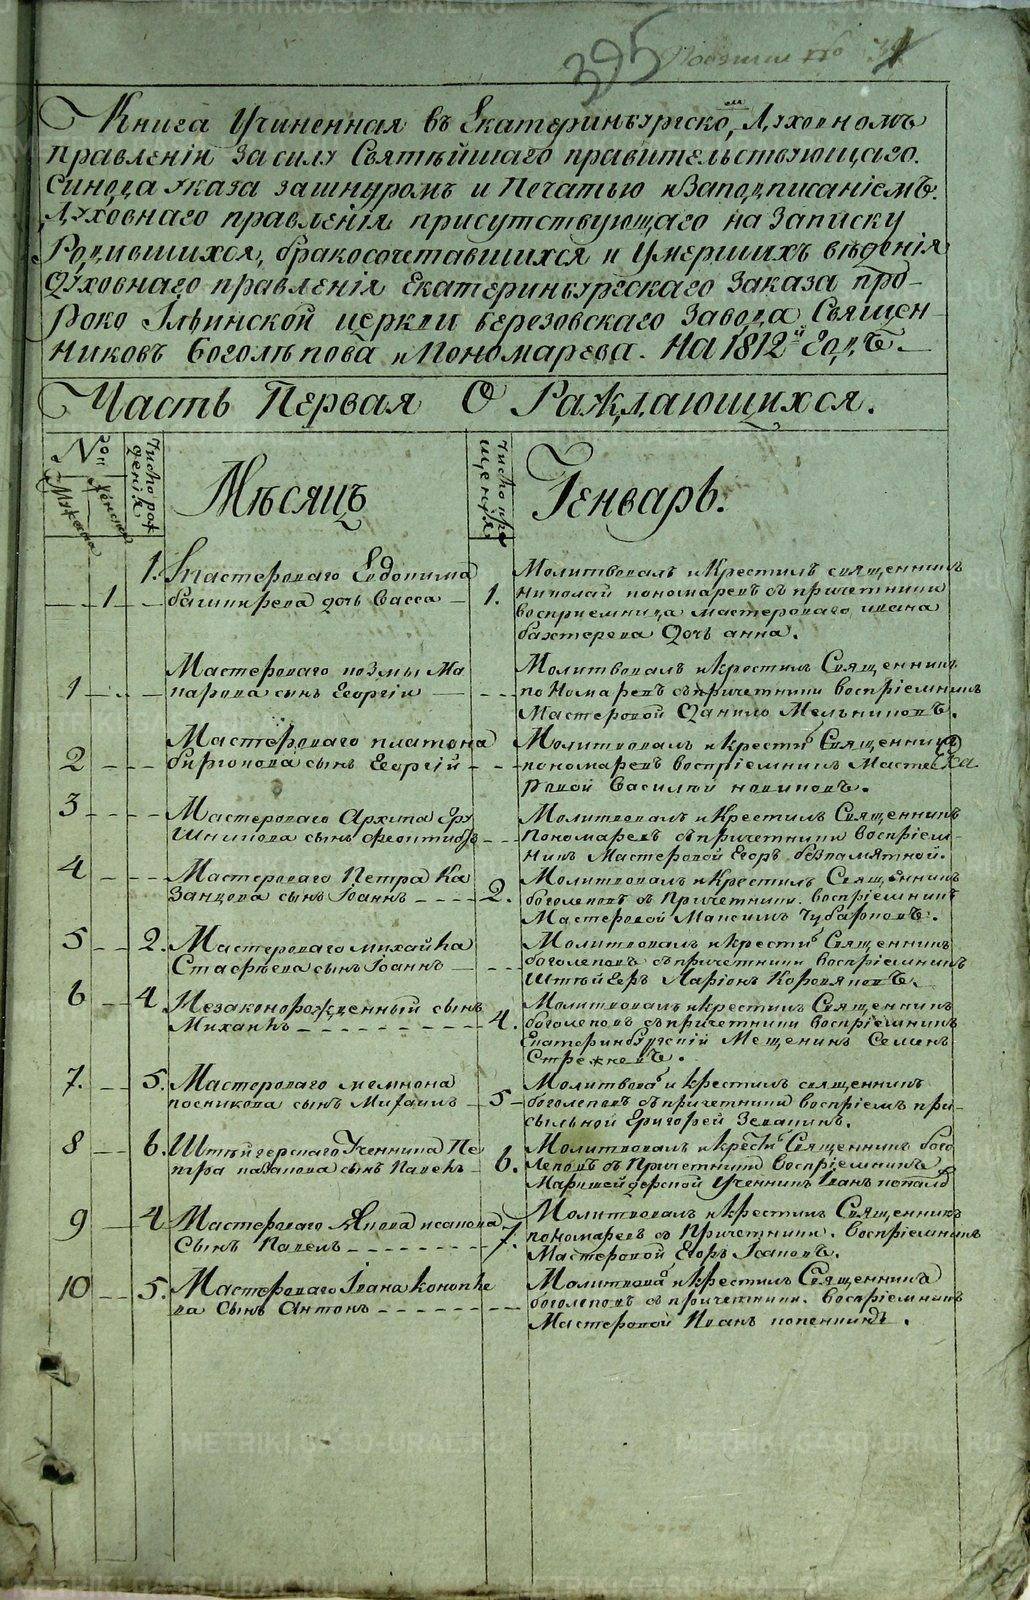 METRIKI.GASO-URAL.RU METRIKI.GASO-URAL.RU
395
Книга Учиненная въ Екатеринбургскомъ Духовномъ
правленіи за силу Святѣйшаго правительствующаго.
Синода указа зашнуромъ и Печатью и Заподписаніемъ.
Духовнаго правленія присутствующаго на Записку
Родившихся, бракосочетавшихся и Умершихъ вѣденія
Духовнаго правленія Екатеринбургскаго Заказа про-
роко Ильинской церкви березовскаго Завода Священ-
никовъ Боголѣпова и Пономарева. На 1812й Годъ.
Часть Первая О Раждающихся.
№ рои
Мужеска
Женска
Число рож
денія
Мѣсяцъ
Число кре
щенія
Генварь.
1. Мастероваго Евдокима
1 башкирева дочь Васса 1.
Молитвовалъ и Крестилъ священникъ
николай пономаревъ съ причетники
восприемница мастероваго ивана
бахтерева дочь анна.
1 Мастероваго козмы Ма
карова сынъ Георгіи
Молитвовалъ и крестилъ Священникъ
пономаревъ съ причетники воспріемникъ
Мастеровой Данило Мельниковъ.
2 Мастероваго платона
сынъ Георгій
Молитвовалъ и крестилъ Священникъ
пономаревъ воспріемникъ Масте
ровой Василій новиковъ.
3 Мастероваго Архипа Гру
шникова сынъ
Молитвовалъ и Крестилъ Священникъ
Пономаревъ съ причетники воспріем-
никъ Мастеровой Егоръ безпамятной.
4 Мастероваго Петра Ка
занцова сынъ Іоаннъ 2.
Молитвовалъ и Крестилъ Священникъ
боголеповъ съ Причетники. Воспріемникъ
Мастеровой Максимъ
5 2. Мастероваго михайла
Стафѣева сынъ Іоаннъ
Молитвовалъ и крестилъ Священникъ
боголеповъ съ причетники воспріемникъ
Штейгеръ Ларіонъ Коровяковъ.
6 4 Незаконорожденный сынъ
Михаилъ 4.
Молитвовалъ и крестилъ Священникъ
боголеповъ съ причетники воспріемникъ
Екатеринбургскій Мещенинъ Семенъ
Стрежневъ.
7. 5. Мастероваго мемнона
посникова сынъ Михаилъ 5
Молитвовалъ и крестилъ священникъ
боголеповъ съ причетники воспріемъ при-
сыльной Григорей
8 6. Штейгерскаго Ученника Пе
тра казакова сынъ Павелъ 6.
Молитвовалъ и крестилъ Священникъ бого
леповъ съ Причетники Воспріемникъ
Маркшейдерской Ученникъ Иванъ
9 4 Мастероваго Якова исакова
Сынъ Павелъ 7.
Молитвовалъ и Крестилъ Священникъ
пономаревъ съ Причетники. Воспріемникъ
Мастеровой Егоръ Исаковъ.
10 5. Мастероваго Ивана коноплe
ва Сынъ Антонъ
Молитвовалъ и крестилъ Священникъ
боголеповъ съ причетники. Воспріемникъ
Мастеровой Иванъ
METRIKI.GASO-URAL.RU METRIKI.GASO-URAL.RU